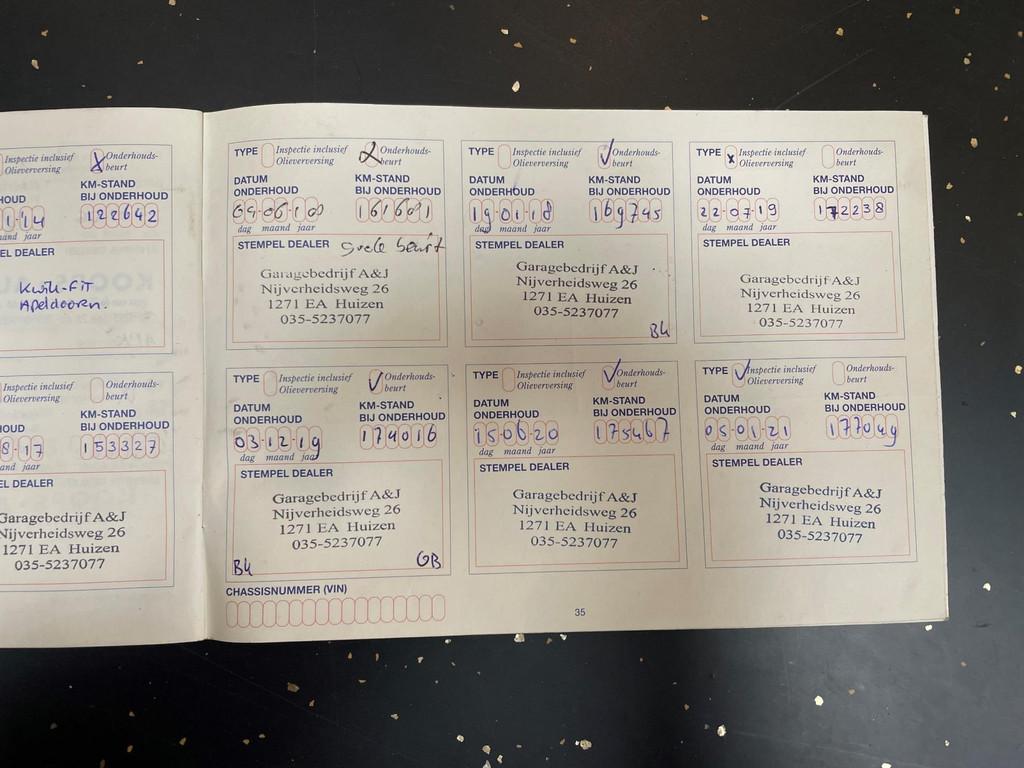 Inspectie inclusief
Olieverversing
X Onderhouds-
beurt
HOUD
KM-STAND
BIJ ONDERHOUD
1-14
122642
aand jaar
EL DEALER
Kwik-Fit
Apeldoorn
Inspectie inclusief
Olieverversing
Onderhouds-
beurt
HOUD
KM-STAND
BIJ ONDERHOUD
8-17
153327
and jaar
EL DEALER
Garagebedrijf A&J
Nijverheidsweg 26
1271 EA Huizen
035-5237077
TYPE
Inspectie inclusief
Olieverversing
Onderhouds-
beurt
DATUM
ONDERHOUD
KM-STAND
BIJ ONDERHOUD
161681
dag maand jaar
STEMPEL DEALER
beurt
Garagebedrijf A&J
Nijverheidsweg 26
1271 EA Huizen
035-5237077
TYPE
Inspectie inclusief
Olieverversing
Onderhouds-
beurt
DATUM
ONDERHOUD
KM-STAND
BIJ ONDERHOUD
19-01-18
169745
dag maand jaar
STEMPEL DEALER
Garagebedrijf A&J
Nijverheidsweg 26
1271 EA Huizen
035-5237077
TYPE
x Inspectie inclusief
Olieverversing
Onderhouds-
beurt
DATUM
ONDERHOUD
KM-STAND
BIJ ONDERHOUD
22-07-19
172238
dag maand jaar
STEMPEL DEALER
Garagebedrijf A&J
Nijverheidsweg 26
1271 EA Huizen
035-5237077
TYPE
Inspectie inclusief
Olieverversing
Onderhouds-
beurt
DATUM
ONDERHOUD
KM-STAND
BIJ ONDERHOUD
03-12-19
174016
dag maand jaar
STEMPEL DEALER
Garagebedrijf A&J
Nijverheidsweg 26
1271 EA Huizen
035-5237077
GB
TYPE
Inspectie inclusief
Olieverversing
Onderhouds-
beurt
DATUM
ONDERHOUD
KM-STAND
BIJ ONDERHOUD
15-06-20
175467
dag maand jaar
STEMPEL DEALER
Garagebedrijf A&J
Nijverheidsweg 26
1271 EA Huizen
035-5237077
TYPE
Inspectie inclusief
Olieverversing
Onderhouds-
beurt
DATUM
ONDERHOUD
KM-STAND
BIJ ONDERHOUD
05-01-21
177049
dag maand jaar
STEMPEL DEALER
Garagebedrijf A&J
Nijverheidsweg 26
1271 EA Huizen
035-5237077
CHASSISNUMMER (VIN)
35